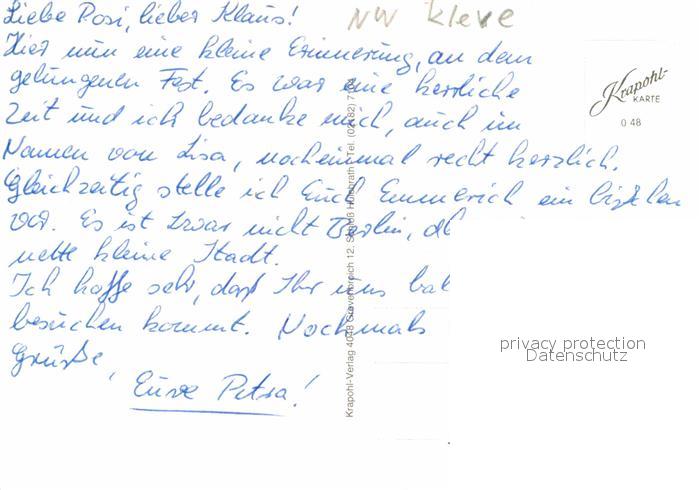 Liebe Rosi, lieber Klaus!
NW Kleve
Hier nun eine kleine Erinnerung, an dem
gelungenen Fest. Es war eine herrliche
Zeit und ich bedanke mich, auch im
Namen von Lisa, nocheinmal recht herzlich.
Gleichzeitig stelle ich Euch Emmerich ein bißchen
vor. Es ist zwar nicht Berlin,
nette kleine Stadt.
Ich hoffe sehr, daß Ihr uns
besuchen kommt. Nochmals
Grüße,
Eure Petra!
Krapohl-
KARTE
0 48
Krapohl-Verlag 4048 Grevenbroich 12,
privacy protection
Datenschutz